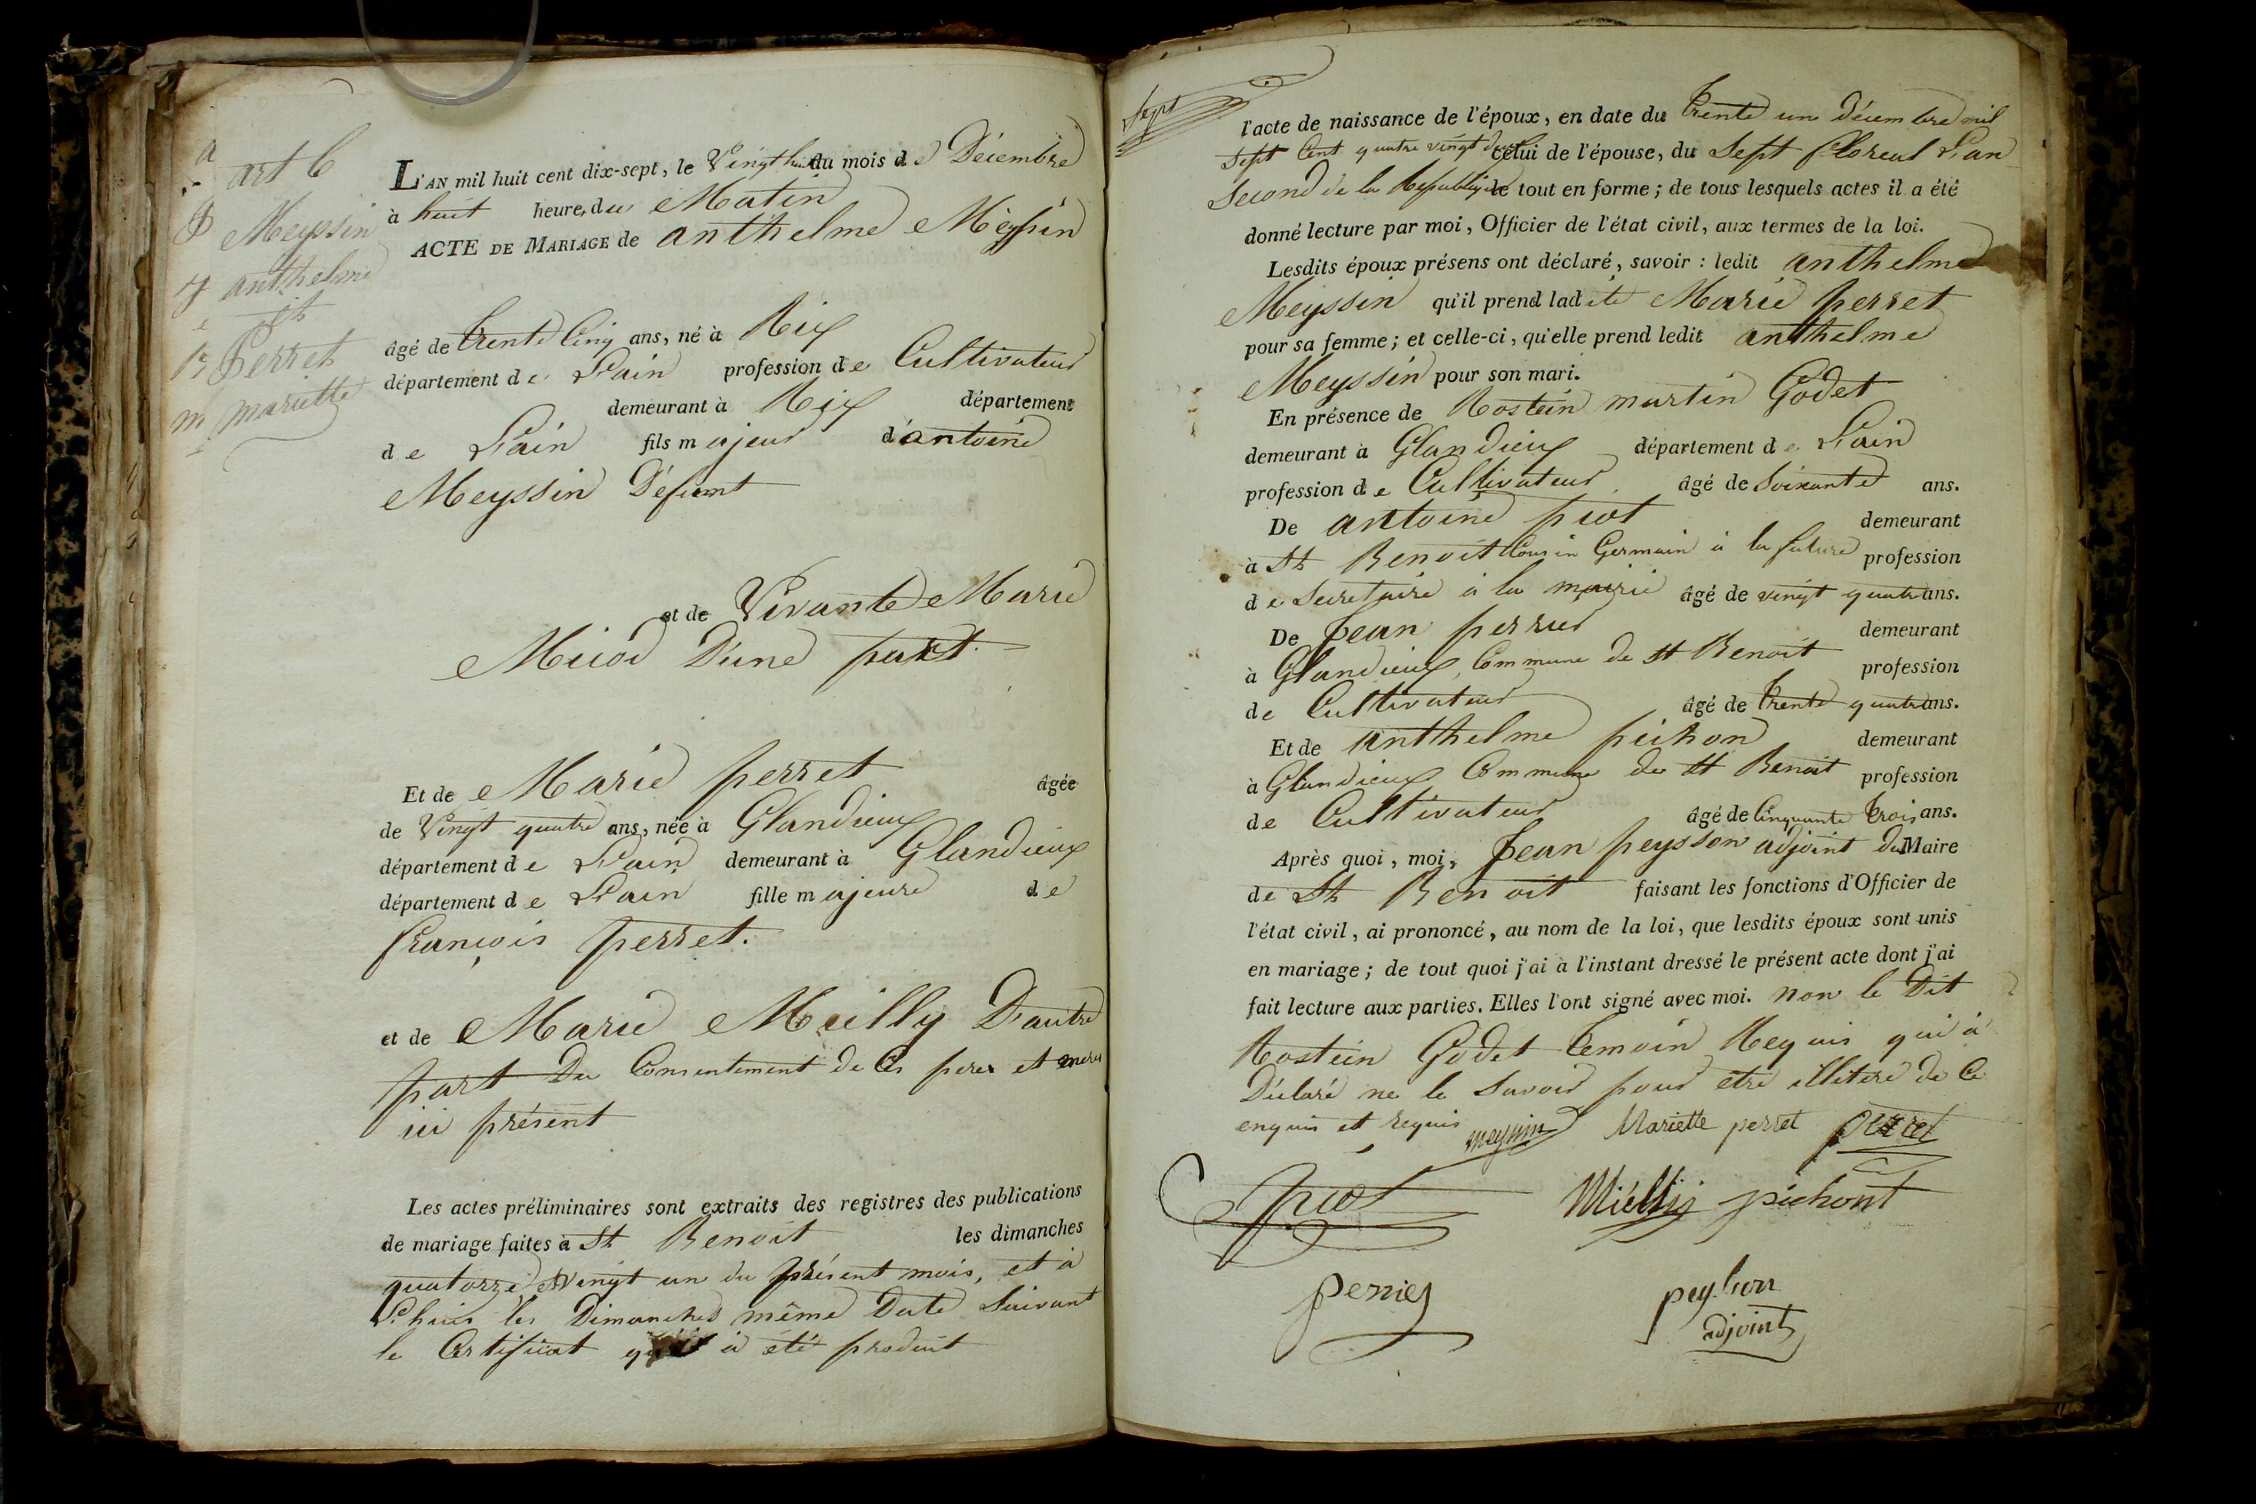 art 6
Meyssin
anthelme
et
Perret
mariette
L'AN mil huit cent dix-sept, le Vingt huit du mois de Décembre
à huit heure, du Matin
ACTE DE MARIAGE de anthelme Meyssin
âgé de trente Cinq ans, né à Rix
département de L'ain profession de Cultivateur
demeurant à Rix département
de L'ain fils majeur d'antoine
Meyssin Défunt
et de Vivante Marie
Miiod D'une part.
Et de Marie perret âgée
de Vingt quatre ans, née à Glandieux
département de L'ain demeurant à Glandieux
département de L'ain fille majeure de
françois perret.
et de Marie Meilly D'autre
part Du Consentement de Ces peres et meres
ici présent
Les actes préliminaires sont extraits des registres des publications
de mariage faites à St Benoit les dimanches
quatorze et vingt un du présent mois, et à
L'huis les Dimanches même Date Suivant
le Certificat qui à été produit
Sept
l'acte de naissance de l'époux, en date du trente un Décembre mil
Sept Cent quatre vingt deux Celui de l'épouse, du Sept floreal L'an
Second de la Republique le tout en forme; de tous lesquels actes il a été
donné lecture par moi, Officier de l'état civil, aux termes de la loi.
Lesdits époux présens ont déclaré, savoir : ledit anthelme
Meyssin qu'il prend ladite Marie perret
pour sa femme; et celle-ci, qu'elle prend ledit anthelme
Meyssin pour son mari.
En présence de Rostein martin Godet
demeurant à Glandieux département de L'ain
profession de Cultivateur âgé de Soixante ans.
De antoine piot demeurant
à St Benoit Cousin Germain à la future profession
de Secretaire à la mairie âgé de vingt quatre ans.
De Jean perrier demeurant
à Glandieux, Commune de St Benoit profession
de Cultivateur âgé de trente quatre ans.
Et de anthelme pichon demeurant
à Glandieux Commune de St Benoit profession
de Cultivateur âgé de Cinquante trois ans.
Après quoi, moi, Jean peysson adjoint du Maire
de St Benoit faisant les fonctions d'Officier de
l'état civil, ai prononcé, au nom de la loi, que lesdits époux sont unis
en mariage; de tout quoi j'ai à l'instant dressé le présent acte dont j'ai
fait lecture aux parties. Elles l'ont signé avec moi. non le Dit
Rostein Godet temoin Requis qui à
Déclaré ne le Savoir pour être illitere de Ce
enquis et requis meyssin Mariette perret perret
piot Miellij pichont
perrier peysson
adjoint